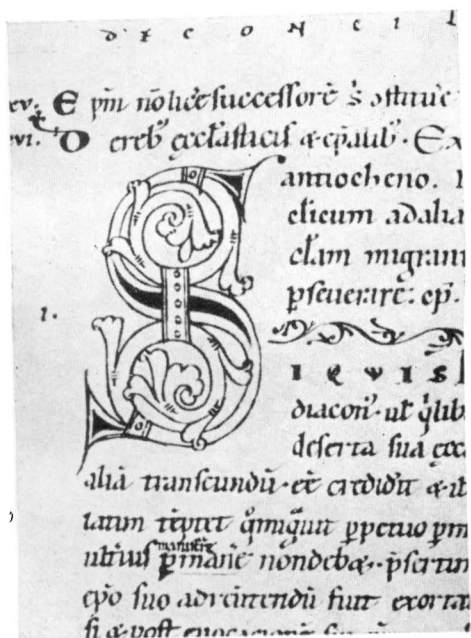 D E C O N C I L
xv. E pm̄ nō licē successorē s̄ ostitue
xvi. D e reb' eccl̄asticis & ep̄alib'. Ex
antiocheno.
elicum ad alia
clam migrant
pseuerire: ep̄.
1. S
I Q V I S
diacon̄. ut q̄lib
deserta suā ecc
aliā transeundū. et credidit & it
tatim tēptet q̄ migauit perpetuo pm
manistre
ulterius pmanē non debe&. p̄sertim
ep̄o suo ad reuertendū fuit exorta
si & post euocationē